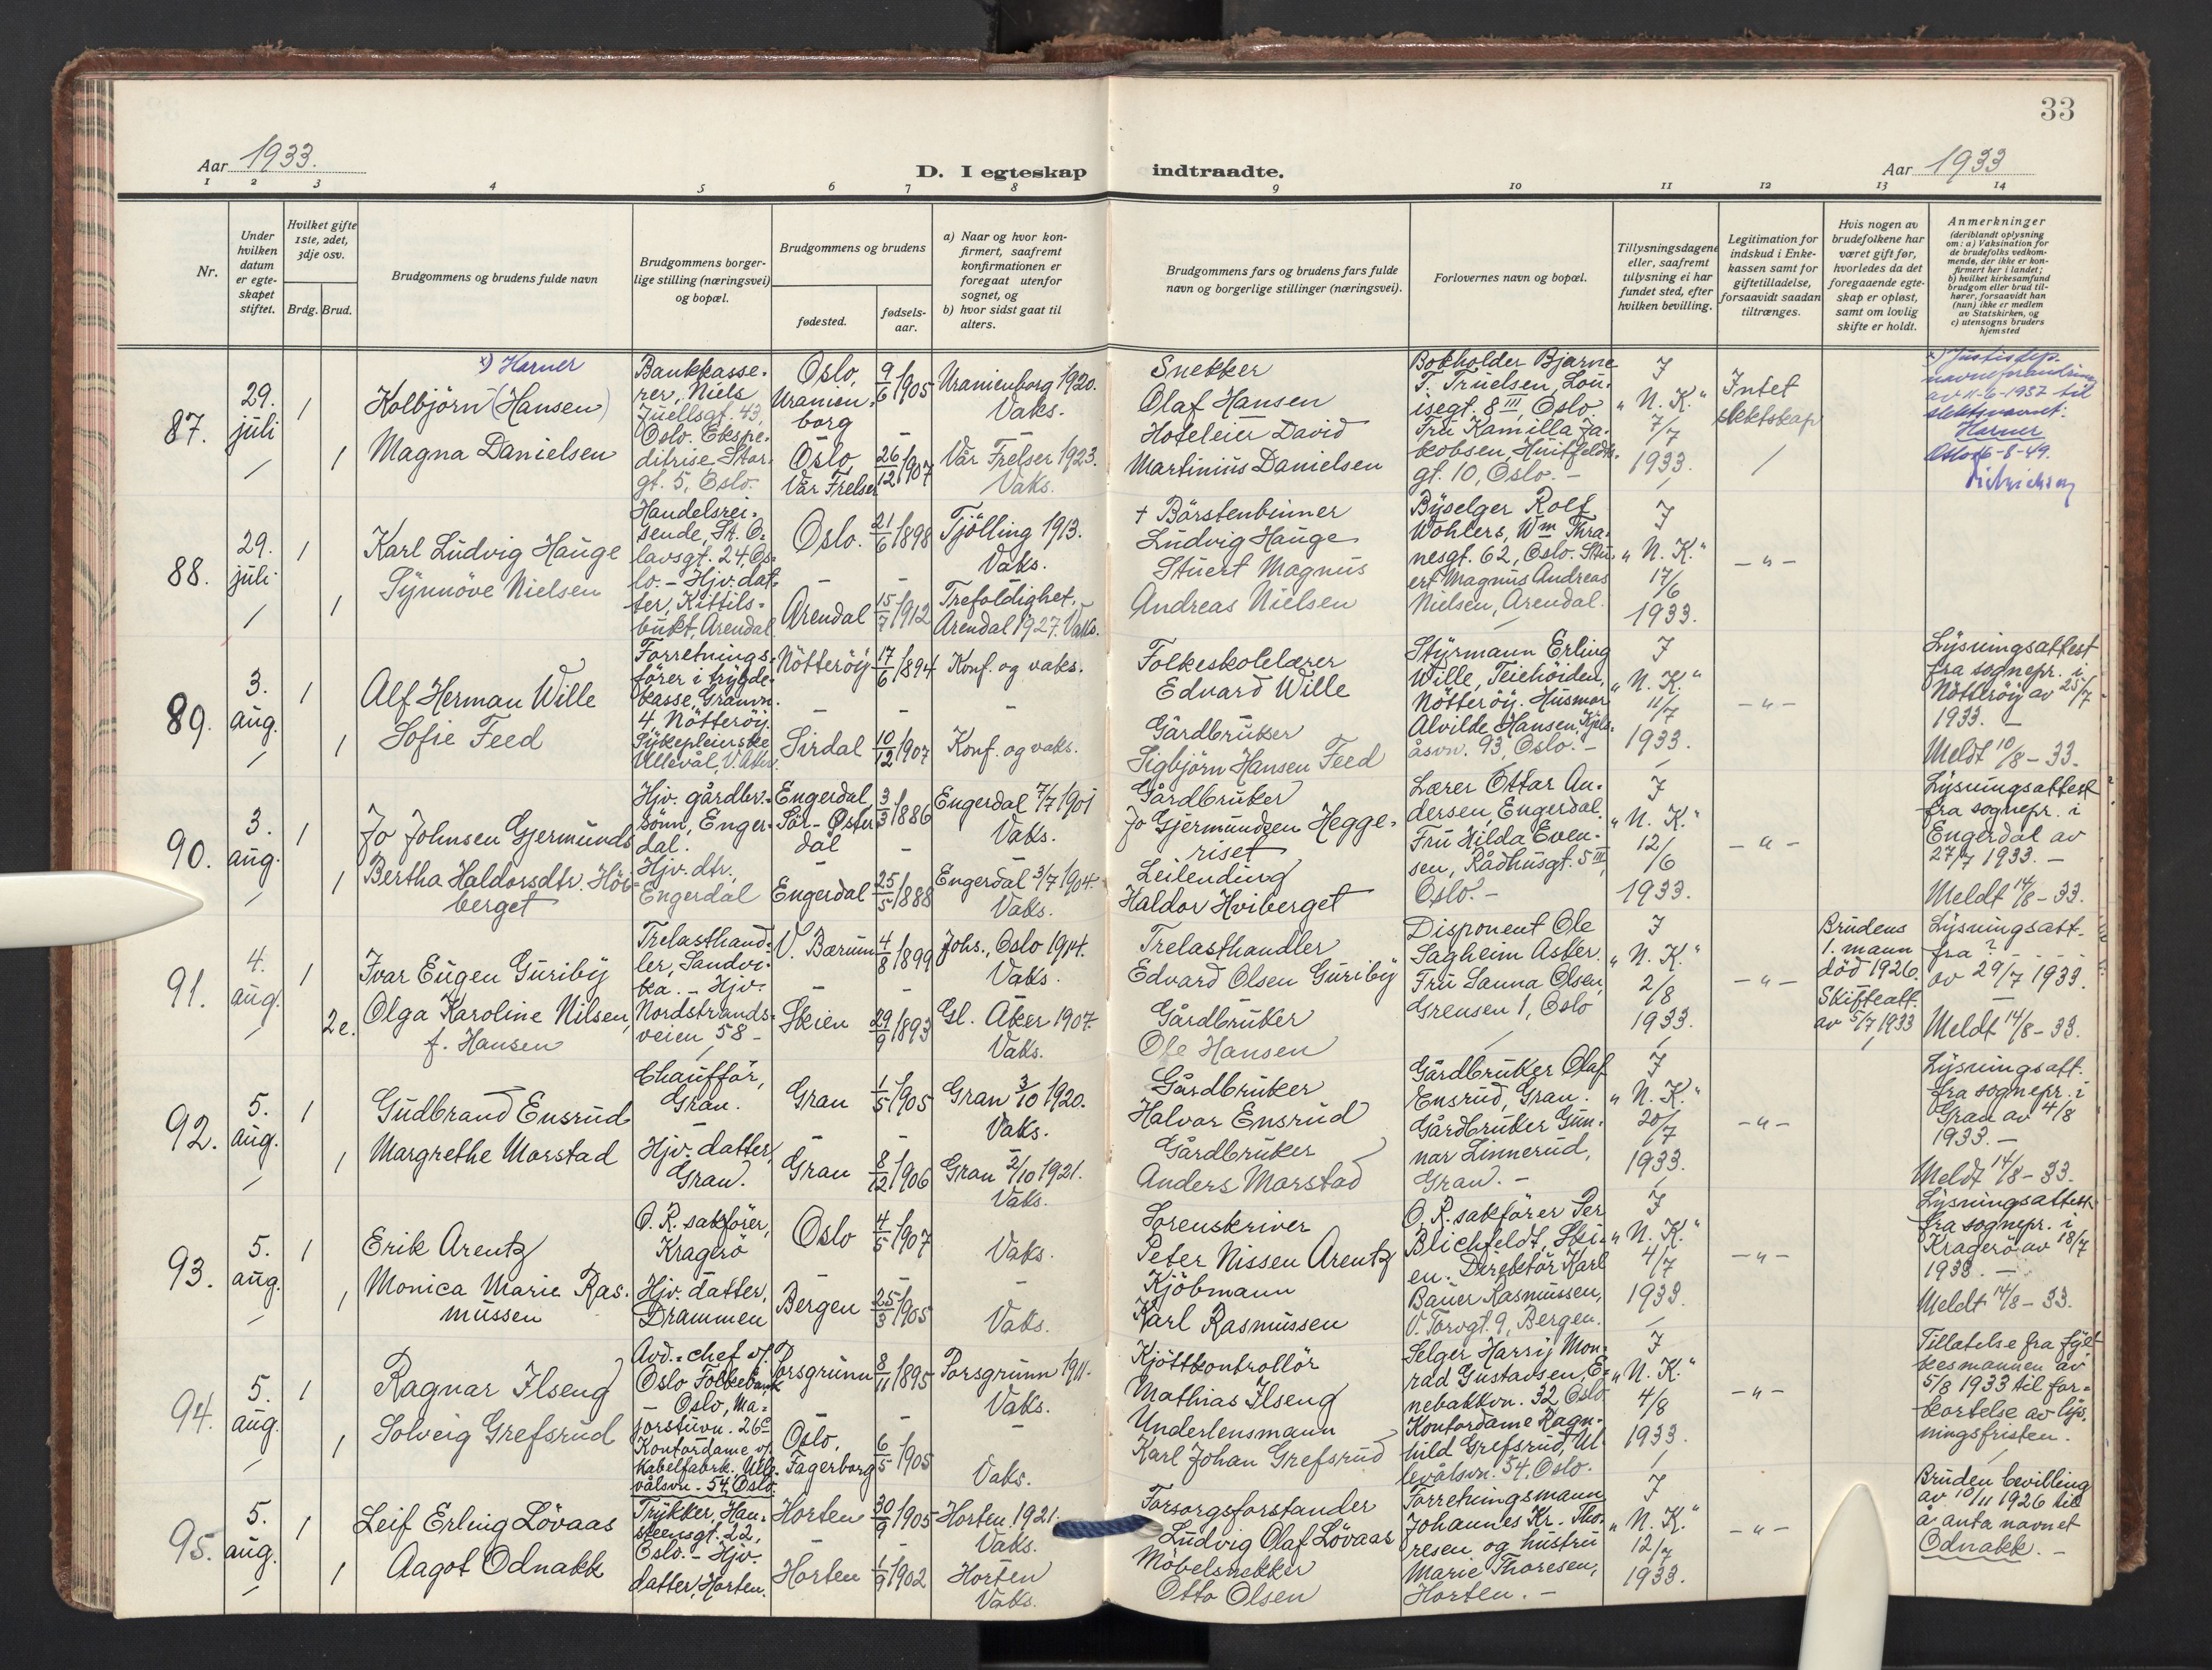 33
Aar 1933.
D. I egteskap indtraadte.
Aar 1933
1 2 3 4 5 6 7 8 9 10 11 12 13 14
Nr.
Under hvilken datum er egteskapet stiftet.
Hvilket gifte 1ste, 2det, 3dje osv.
Brdg. Brud.
Brudgommens og brudens fulde navn
Brudgommens borgerlige stilling (næringsvei) og bopæl.
Brudgommens og brudens
fødested.
fødselsaar.
a) Naar og hvor konfirmert, saafremt konfirmationen er foregaat utenfor sognet, og
b) hvor sidst gaat til alters.
Brudgommens fars og brudens fars fulde navn og borgerlige stillinger (næringsvei).
Forlovernes navn og bopæl.
Tillysningsdagene eller, saafremt tillysning ei har fundet sted, efter hvilken bevilling.
Legitimation for indskud i Enkekassen samt for giftetilladelse, forsaavidt saadan tiltrænges.
Hvis nogen av brudefolkene har været gift før, hvorledes da det foregaaende egteskap er opløst, samt om lovlig skifte er holdt.
Anmerkninger
(deriblandt oplysning om: a) Vaksination for de brudefolks vedkommende, der ikke er konfirmert her i landet;
b) hvilket kirkesamfund brudgom eller brud tilhører, forsaavidt han (hun) ikke er medlem av Statskirken, og
c) utensogns bruders hjemsted
87.
29. juli
1
1
x) Harner
Kolbjörn (Hansen)
Magna Danielsen
Bankkasserer, Niels Juellsgt. 43, Oslo. Ekspeditrise, Storgt. 5, Oslo.
Oslo, Uranienborg
9/6 1905
Uranienborg 1920. Vaks.
Oslo Vår Frelser
26/12 1907
Vår Frelser 1923. Vaks.
Snekker
Olaf Hansen
Hoteleier David
Martinius Danielsen
Bokholder Bjarne T. Truelsen, Louisegt. 8 III, Oslo.
Fru Kamilla Jakobsen, Huitfeldtsgt. 10, Oslo. -
I "N. K." 7/7 1933.
Intet slektskap
x) Justisdep. navneforandring av 11-6-1937 til slektsnavnet: Harner
88.
29. juli
1
1
Karl Ludvig Hauge
Synnöve Nielsen
Handelsreisende, St. Olavsgt. 24, Oslo. - Hjv. datter, Kittilsbukt, Arendal
Oslo.
21/6 1898
Tjölling 1913. Vaks.
Arendal
15/7 1912
Trefoldighet, Arendal 1927. Vaks.
+ Börstenbinner
Ludvig Hauge
Stuert Magnus
Andreas Nielsen
Byselger Rolf Wohlers, Wm Thranesgt. 62, Oslo. Stuert Magnus Andreas Nielsen, Arendal.
I "N. K." 17/6 1933.
- " -
89.
3. aug.
1
1
Alf Herman Wille
Sofie Feed
Forretningsförer i trygdekasse, Gramn. 4, Nötteröy.
Sykepleierske Ullevål, V. Aker
Nötteröy
17/6 1894
Konf. og vaks.
Sirdal
10/12 1907
Konf. og vaks.
Folkeskolelærer
Edvard Wille
Gårdbruker
Sigbjörn Hansen Feed
Styrmann Erling Wille, Teiehöiden, Nötteröy. Husmor Alvilde Hansen, Kjelsåsvn. 93, Oslo. -
I "N. K." 11/7 1933.
- " -
Lysningsattest fra sognepr. i Nötteröy av 25/7 1933. -
Meldt 10/8 - 33.
90.
3. aug.
1
1
Jo Johnsen Gjermunds
Bertha Haldorsdtr. Höiberget
Hjv. gårdbr. sönn, Engerdal.
Hjv. dtr., Engerdal
Engerdal, Sör-Österdal
3/3 1886
Engerdal 7/7 1901 Vaks.
Engerdal
25/5 1888
Engerdal 3/7 1904. Vaks.
Gårdbruker
Jo Gjermundsen Heggeriset
Leilending
Haldor Hviberget
Lærer Ottar Andersen, Engerdal.
Fru Hilda Evensen, Rådhusgt. 5 III, Oslo. -
I "N. K." 12/6 1933.
- " -
Lysningsattest fra sognepr. i Engerdal av 27/7 1933. -
Meldt 14/8 - 33.
91.
4. aug.
1
2e.
Ivar Eugen Guriby
Olga Karoline Nilsen, f. Hansen
Trelasthandler, Sandvika. - Hjv. Nordstrandsveien 58 -
V. Bærum
4/8 1899
Johs., Oslo 1914. Vaks.
Skien
29/9 1893
Gl. Aker 1907. Vaks.
Trelasthandler
Edvard Olsen Guriby
Gårdbruker
Ole Hansen
Disponent Ole Sagheim Asker.
Fru Sanna Olsen, Grensen 1, Oslo
I "N. K." 2/8 1933.
- " -
Brudens 1. mann död 1926. Skifteatt. av 5/7 1933
Lysningsatt. fra ? av 29/7 1933.
Meldt 14/8 - 33.
92.
5. aug.
1
1
Gudbrand Ensrud
Margrethe Morstad
Chaufför, Gran.
Hjv. datter, Gran.
Gran
1/5 1905
Gran 3/10 1920. Vaks.
Gran
8/12 1906
Gran 2/10 1921. Vaks.
Gårdbruker
Halvor Ensrud
Gårdbruker
Anders Morstad
Gårdbruker Olaf Ensrud, Gran.
Gårdbruker Gunnar Linnerud, Gran. -
I "N. K." 20/7 1933.
- " -
Lysningsatt. fra sognepr. i Gran av 4/8 1933. -
Meldt 14/8 - 33.
93.
5. aug.
1
1
Erik Arentz
Monica Marie Rasmussen
O. R. sakförer, Kragerö
Hjv. datter, Drammen
Oslo
4/5 1907
Vaks.
Bergen
25/3 1905
Vaks.
Sorenskriver
Peter Nissen Arentz
Kjöbmann
Karl Rasmussen
O. R. sakförer Per Blichfeldt, Skien. Direktör Karl Bauer Rasmussen, V. Torvgt. 9, Bergen.
I "N. K." 4/7 1933.
- " -
Lysningsattest fra sognepr. i Kragerö av 18/7 1933. -
Meldt 14/8 - 33.
94.
5. aug.
1
1
Ragnar Ilseng
Solveig Grefsrud
Avd.-chef v/ Oslo Folkebank - Oslo, Majorstuvn. 26c
Kontordame v/ Kabelfabrk., Ullevålsvn. 54, Oslo.
Porsgrunn
8/11 1895
Porsgrunn 1911. Vaks.
Oslo, Fagerborg
6/5 1905
Vaks.
Kjöttkontrollör
Mathias Ilseng
Underlensmann
Karl Johan Grefsrud
Selger Harry Monrad Gustavsen, Enebakkvn. 32, Oslo
Kontordame Ragnhild Grefsrud, Ullevålsvn. 54, Oslo.
I "N. K." 4/8 1933.
- " -
Tillatelse fra fylkesmannen av 5/8 1933 til forkortelse av lysningsfristen.
95.
5. aug.
1
1
Leif Erling Lövaas
Aagot Odnakk
Trykker, Hansteensgt. 22, Oslo. - Hjv. datter, Horten.
Horten
30/9 1905
Horten 1921. Vaks.
Horten
1/9 1902
Horten Vaks.
Forsorgsforstander
Ludvig Olaf Lövaas
Möbelsnekker
Otto Olsen
Forretningsmann Johannes Kr. Thoresen og hustru Marie Thoresen, Horten. -
I "N. K." 12/7 1933.
- " -
Bruden bevilling av 10/11 1926 til å anta navnet Odnakk. -